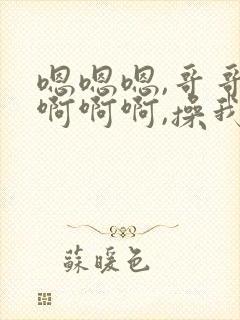 嗯嗯嗯,哥哥
啊啊啊,操我
蘇暖色